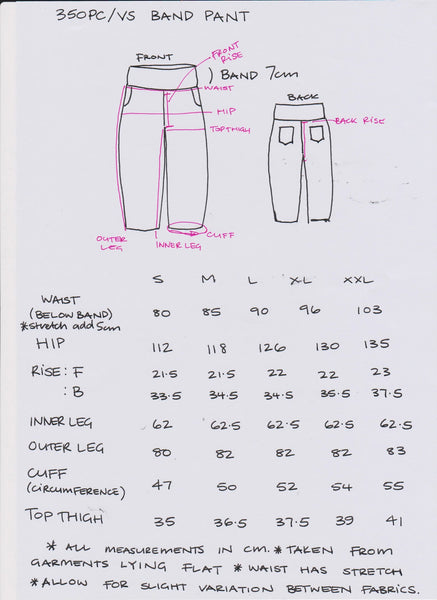 350PC/VS BAND PANT
FRONT
FRONT RISE
) BAND 7cm
WAIST
HIP
TOP THIGH
OUTER LEG
INNER LEG
CUFF
BACK
BACK RISE
S M L XL XXL
WAIST
(BELOW BAND) 80 85 90 96 103
*stretch add 5cm
HIP 112 118 126 130 135
RISE: F 21.5 21.5 22 22 23
: B 33.5 34.5 34.5 35.5 37.5
INNER LEG 62 62.5 62.5 62.5 62.5
OUTER LEG 80 82 82 82 83
CUFF
(CIRCUMFERENCE) 47 50 52 54 55
TOP THIGH 35 36.5 37.5 39 41
* ALL MEASUREMENTS IN CM. * TAKEN FROM
GARMENTS LYING FLAT * WAIST HAS STRETCH
* ALLOW FOR SLIGHT VARIATION BETWEEN FABRICS.